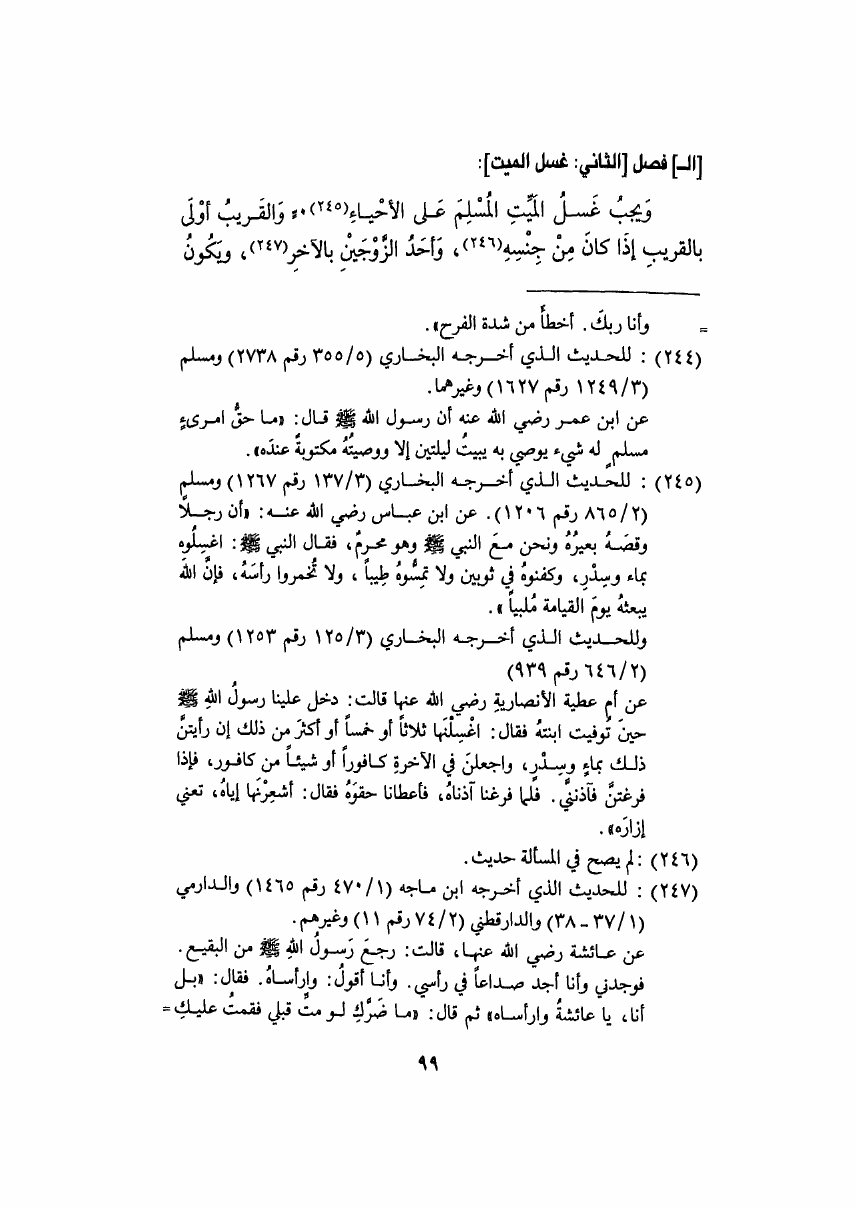 [الـ] فصل [الثاني: غسل الميت]:
وَيَجِبُ غَسلُ المَيِّتِ المُسْلِمِ عَلى الأحْياءِ(٢٤٥)، وَالقَريبُ أوْلَى
بالقريبِ إذَا كانَ مِنْ جِنْسِهِ(٢٤٦)، وَأحَدُ الزَّوْجَيْنِ بالآخرِ(٢٤٧)، ويَكُونُ
= وأنا ربكَ. أخطأَ من شدة الفرح».
(٢٤٤) : للحديث الذي أخرجه البخاري (٣٥٥/٥ رقم ٢٧٣٨) ومسلم
(١٢٤٩/٣ رقم ١٦٢٧) وغيرهما.
عن ابن عمر رضي الله عنه أن رسول الله ﷺ قال: «ما حقُّ امرىءٍ
مسلمٍ له شيء يوصي به يبيتُ ليلتين إلا ووصيتُهُ مكتوبةٌ عندَه».
(٢٤٥) : للحديث الذي أخرجه البخاري (١٣٧/٣ رقم ١٢٦٧) ومسلم
(٨٦٥/٢ رقم ١٢٠٦). عن ابن عباس رضي الله عنه: «أن رجلاً
وقصَهُ بعيرُهُ ونحن معَ النبي ﷺ وهو محرمٌ، فقال النبي ﷺ: اغسِلُوه
بماء وسِدْرٍ، وكفنوهُ في ثوبين ولا تمِسُّوهُ طِيباً ، ولا تُخمروا رأسَهُ، فإنَّ اللهَ
يبعثهُ يومَ القيامة مُلبياً ».
وللحديث الذي أخرجه البخاري (١٢٥/٣ رقم ١٢٥٣) ومسلم
(٦٤٦/٢ رقم ٩٣٩)
عن أم عطية الأنصاريةِ رضي الله عنها قالت: دخل علينا رسولُ اللهِ ﷺ
حينَ تُوفيت ابنتهُ فقال: اغْسِلْنَها ثلاثاً أو خمساً أو أكثرَ من ذلك إن رأيتنَّ
ذلك بماءٍ وسِدْرٍ، واجعلنَ في الآخرةِ كافوراً أو شيئاً من كافور، فإذا
فرغتنَّ فآذنني. فلما فرغنا آذناهُ، فأعطانا حقوَهُ فقال: أشعِرْنَها إياهُ، تعني
إزارَه».
(٢٤٦) : لم يصح في المسألة حديث.
(٢٤٧) : للحديث الذي أخرجه ابن ماجه (٤٧٠/١ رقم ١٤٦٥) والدارمي
(٣٧/١ - ٣٨) والدارقطني (٧٤/٢ رقم ١١) وغيرهم.
عن عائشة رضي الله عنها، قالت: رجعَ رَسولُ اللهِ ﷺ من البقيع.
فوجدني وأنا أجد صداعاً في رأسي. وأنا أقولُ: وارأساهُ. فقال: «بل
أنا، يا عائشةُ وارأساه» ثم قال: «ما ضَرَّكِ لو متِّ قبلي فقمتُ عليكِ =
٩٩